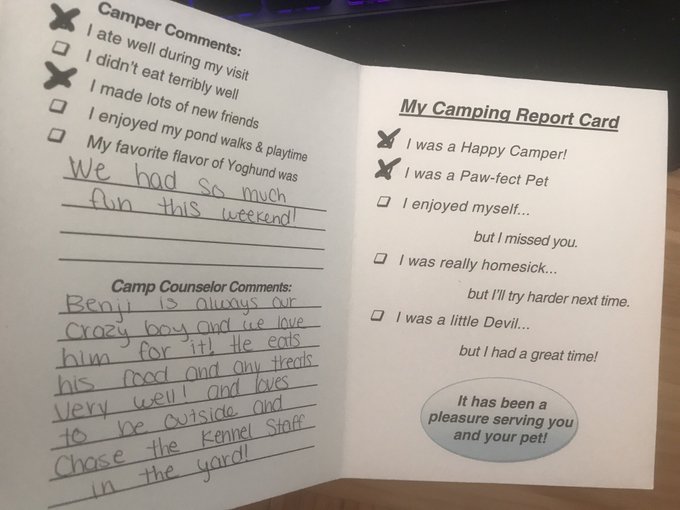 Camper Comments:
I ate well during my visit
I didn't eat terribly well
I made lots of new friends
I enjoyed my pond walks & playtime
My favorite flavor of Yoghund was
We had so much
fun this weekend!
Camp Counselor Comments:
Benji is always our
crazy boy and we love
him for it! He eats
his food and any treats
very well! and loves
to be outside and
chase the Kennel Staff
in the yard!
My Camping Report Card
I was a Happy Camper!
I was a Paw-fect Pet
I enjoyed myself...
but I missed you.
I was really homesick...
but I'll try harder next time.
I was a little Devil...
but I had a great time!
It has been a
pleasure serving you
and your pet!